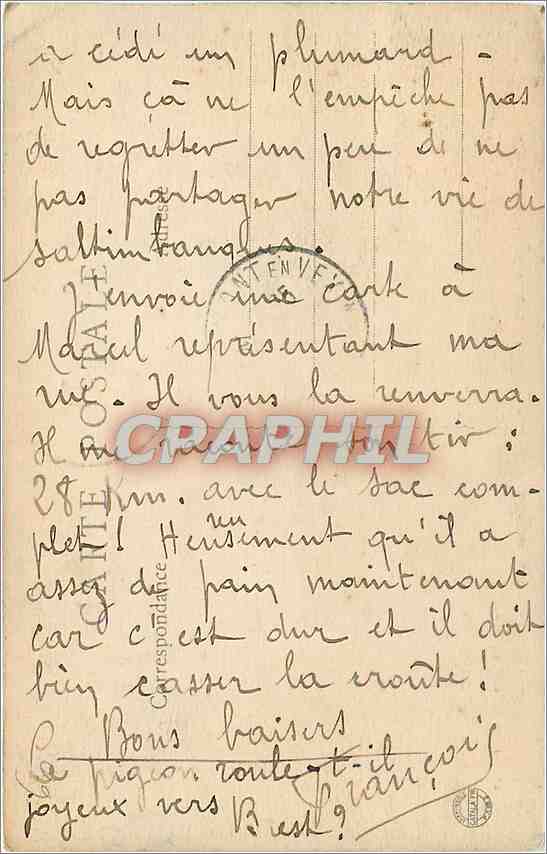 a cédé un plumard -
Mais çà ne l'empêche pas
de regretter un peu de ne
pas partager notre vie de
saltimbanques.
J'envoie une carte à
Marcel représentant ma
rue. Il vous la renverra.
Il me raconte son tir :
28 Km. avec le sac com-
plet ! Heureusement qu'il a
assez de pain maintenant
car c'est dur et il doit
bien casser la croûte !
Bons baisers
François
Le pigeon roule-t-il
joyeux vers Brest ?
CARTE POSTALE
Correspondance
Adresse
NT EN VEX
CPARPHIL